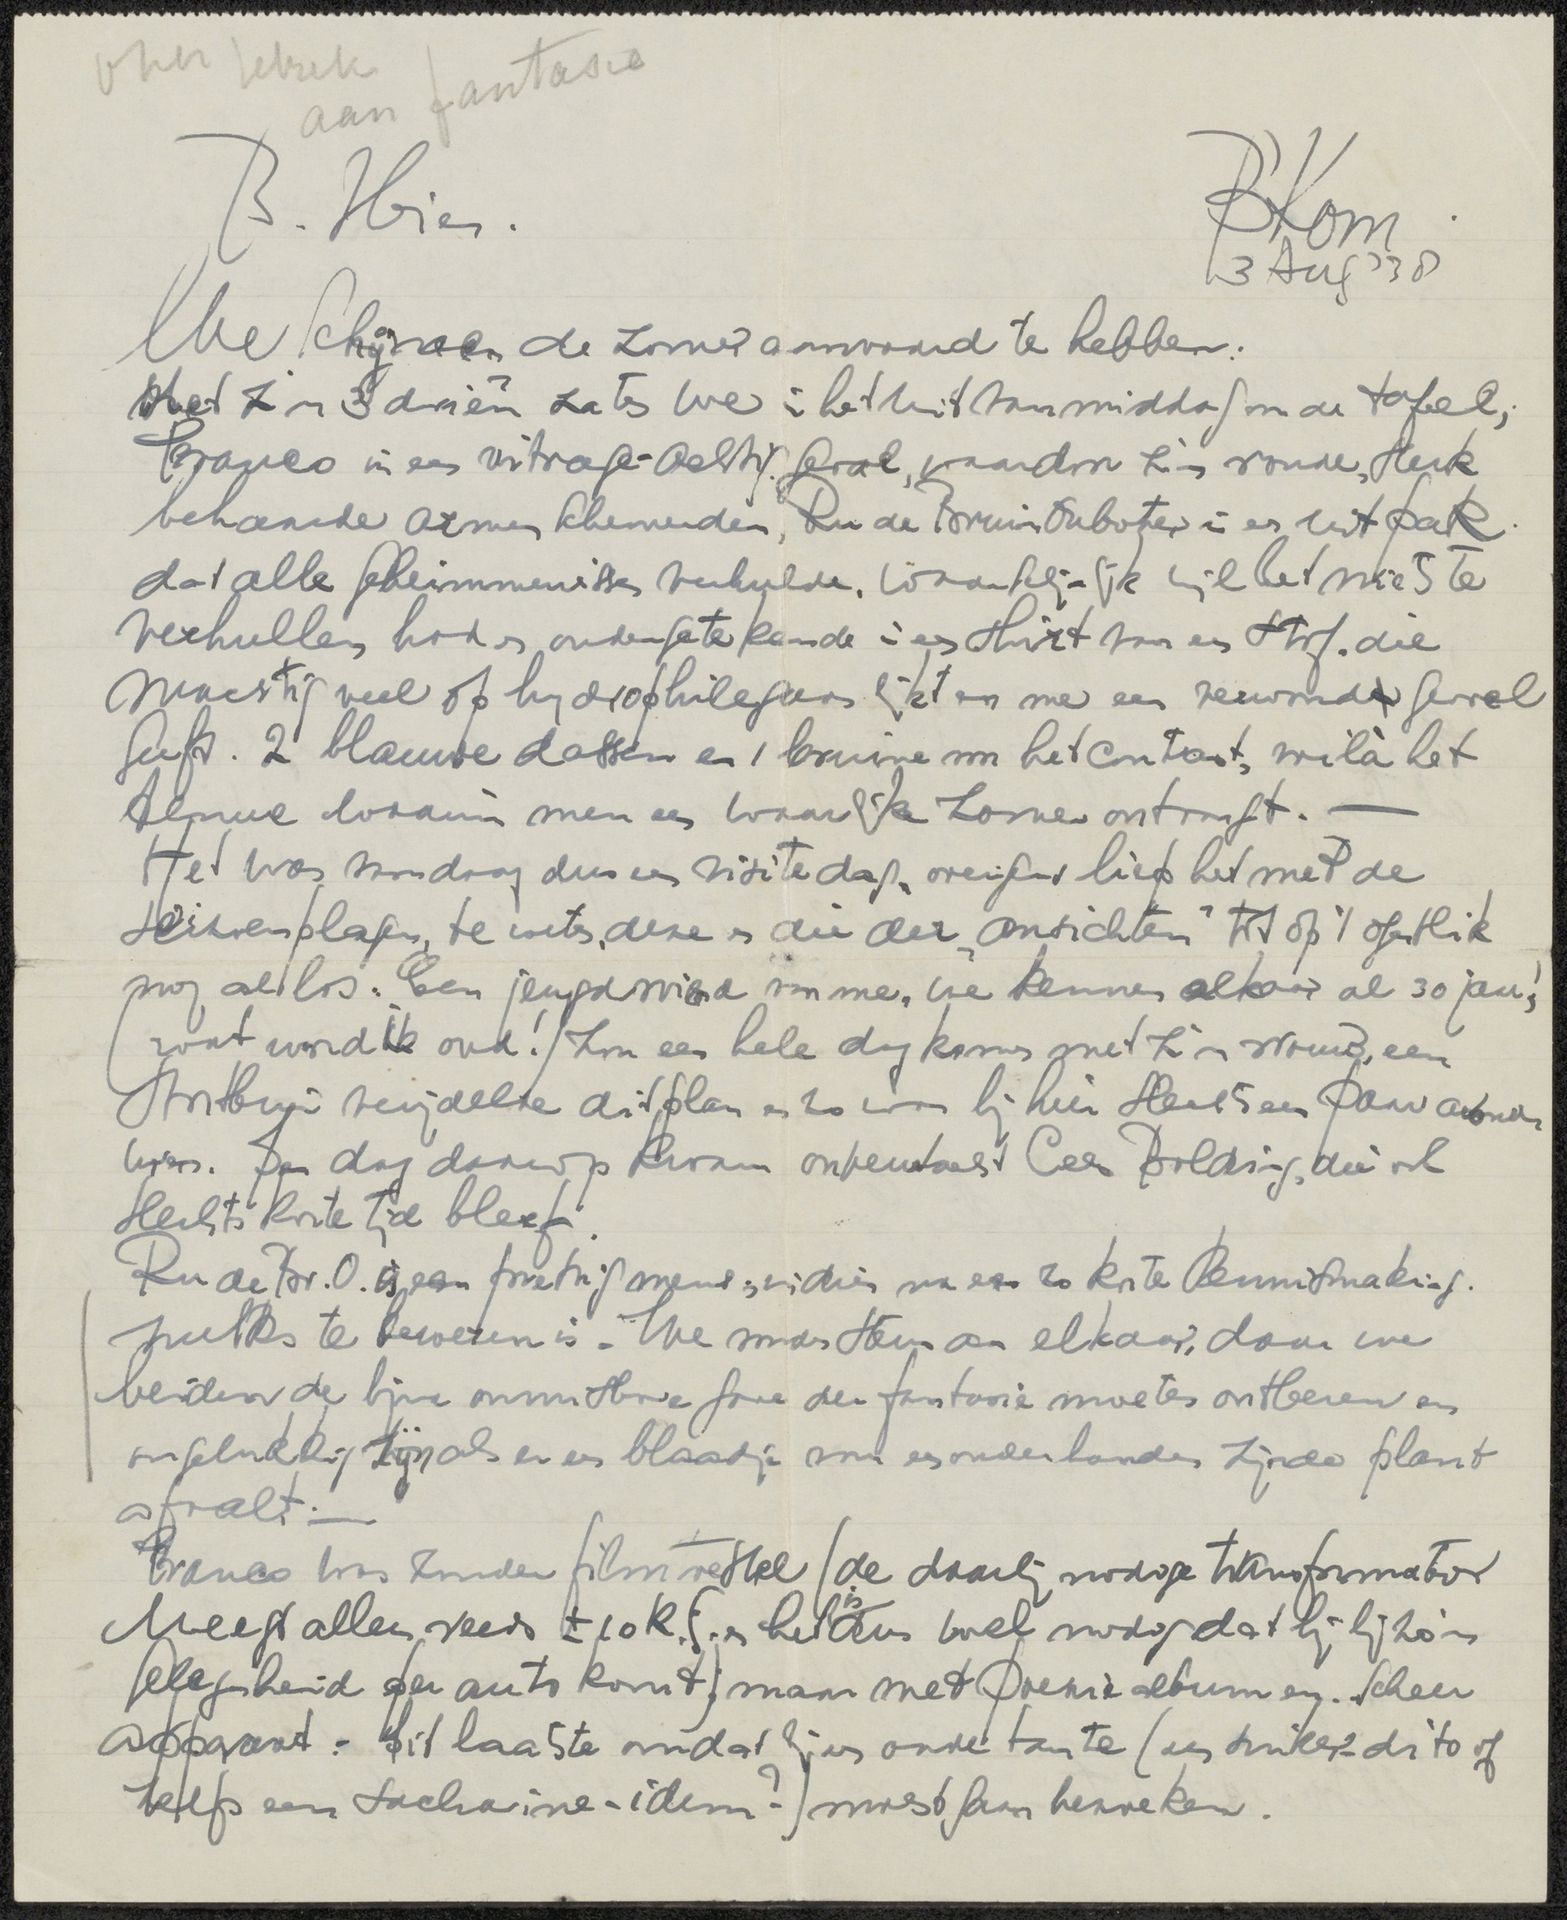 over gebrek
aan fantasie
B. Hier.
B'Kom
3 Aug '38
We schijnen de zomer aanvaard te hebben.
Met z'n 3 drieën zaten we in het wit vanmiddag om de tafel;
Branco in een vitrage-achtig geval, waardoor z'n ronde, sterk
behaarde armen schemerden, Ru de Bruin Ouboter in een wit pak
dat alle geheimenissen verhulde, waarschijnlijk wijl het niets te
verhullen had en ondergetekende in een shirt van een stof, die
machtig veel op hydrophiele gaas lijkt en me een verwonde gevoel
geeft. 2 blauwe dassen en 1 bruine om het contrast, voilà het
tenue waarin men een waarlijke zomer ontvangt. —
Het was vandaag dus een visitedag, overigens liep het met de
plagen, te weten, deze en die der "ansichten" tot op 't ogenblik
nog al los. Een jeugdvriend van me, (we kennen elkaar al 30 jaar;
wat word ik oud!) zou een hele dag komen met z'n vrouw, een
stortbui verijdelde dit plan en zo was hij hier slechts een paar avond
uren. De dag daarop kwam onverwacht Cees Bolding, die ook
slechts korte tijd bleef.
Ru de Br. O. is een prettig mens, indien na een zo korte kennismaking
zulks te beweren is. We vonden steun aan elkaar, daar we
beiden de bijna onmisbare gave der fantasie moeten ontberen en
ongelukkig zijn als er een blaadje van een onderhanden zijnde plant
afvalt. —
Branco was zonder filmtoestel (de daarbij nodige transformator
weegt alleen reeds ± 10 K.G. en het is dus wel nodig dat hij bij zo'n
gelegenheid per auto komt) maar met poëzie album en scheer
apparaat. Dit laatste omdat hij een oude tante (een suiker-dito of
zelfs een sacharine-idem?) moest gaan bezoeken.